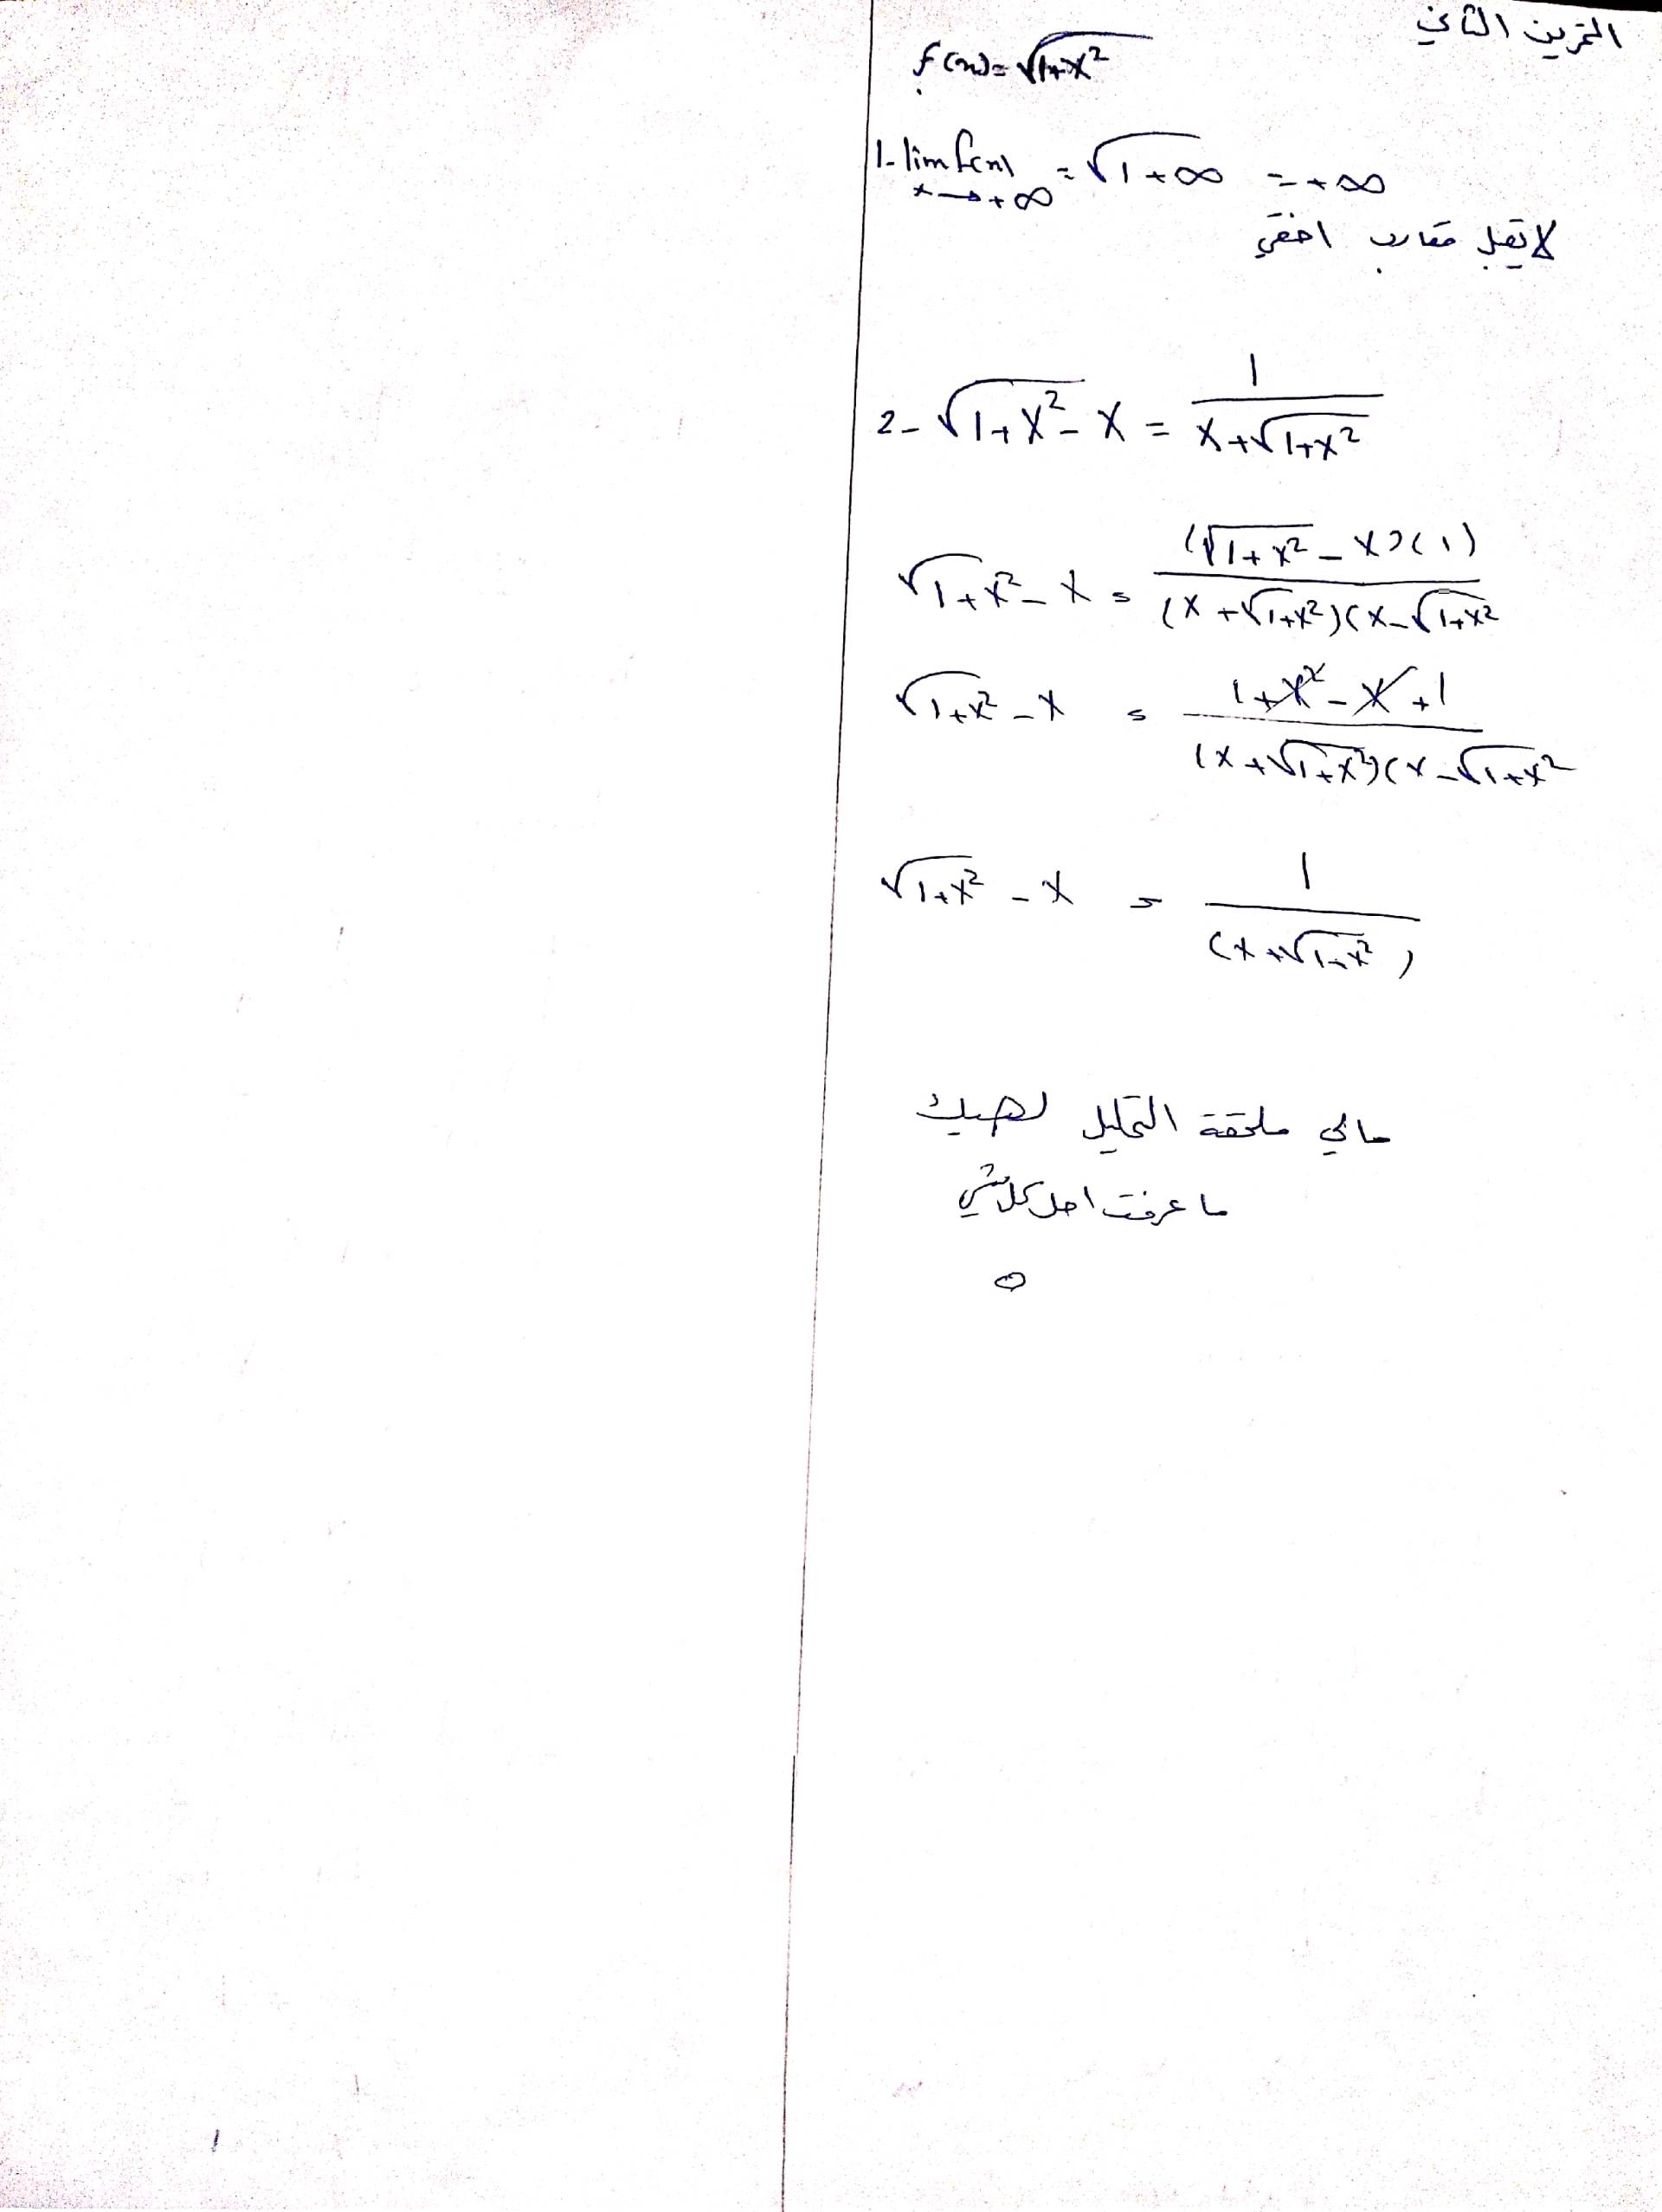 التمرين الثاني
f(x)=√1+x²
1- lim f(x) x→+∞ = √1+∞ = +∞
لا تقبل مقارب افقي
2- √1+x² - x = 1/(x+√1+x²)
√1+x² - x = (√1+x² - x)(1)/(x+√1+x²)(x-√1+x²
√1+x² - x = 1+x²-x+1/(x+√1+x²)(x-√1+x²
√1+x² - x = 1/(x+√1+x²)
مالي ملحقة التحليل لهيك
ما عرفت احل كلشي